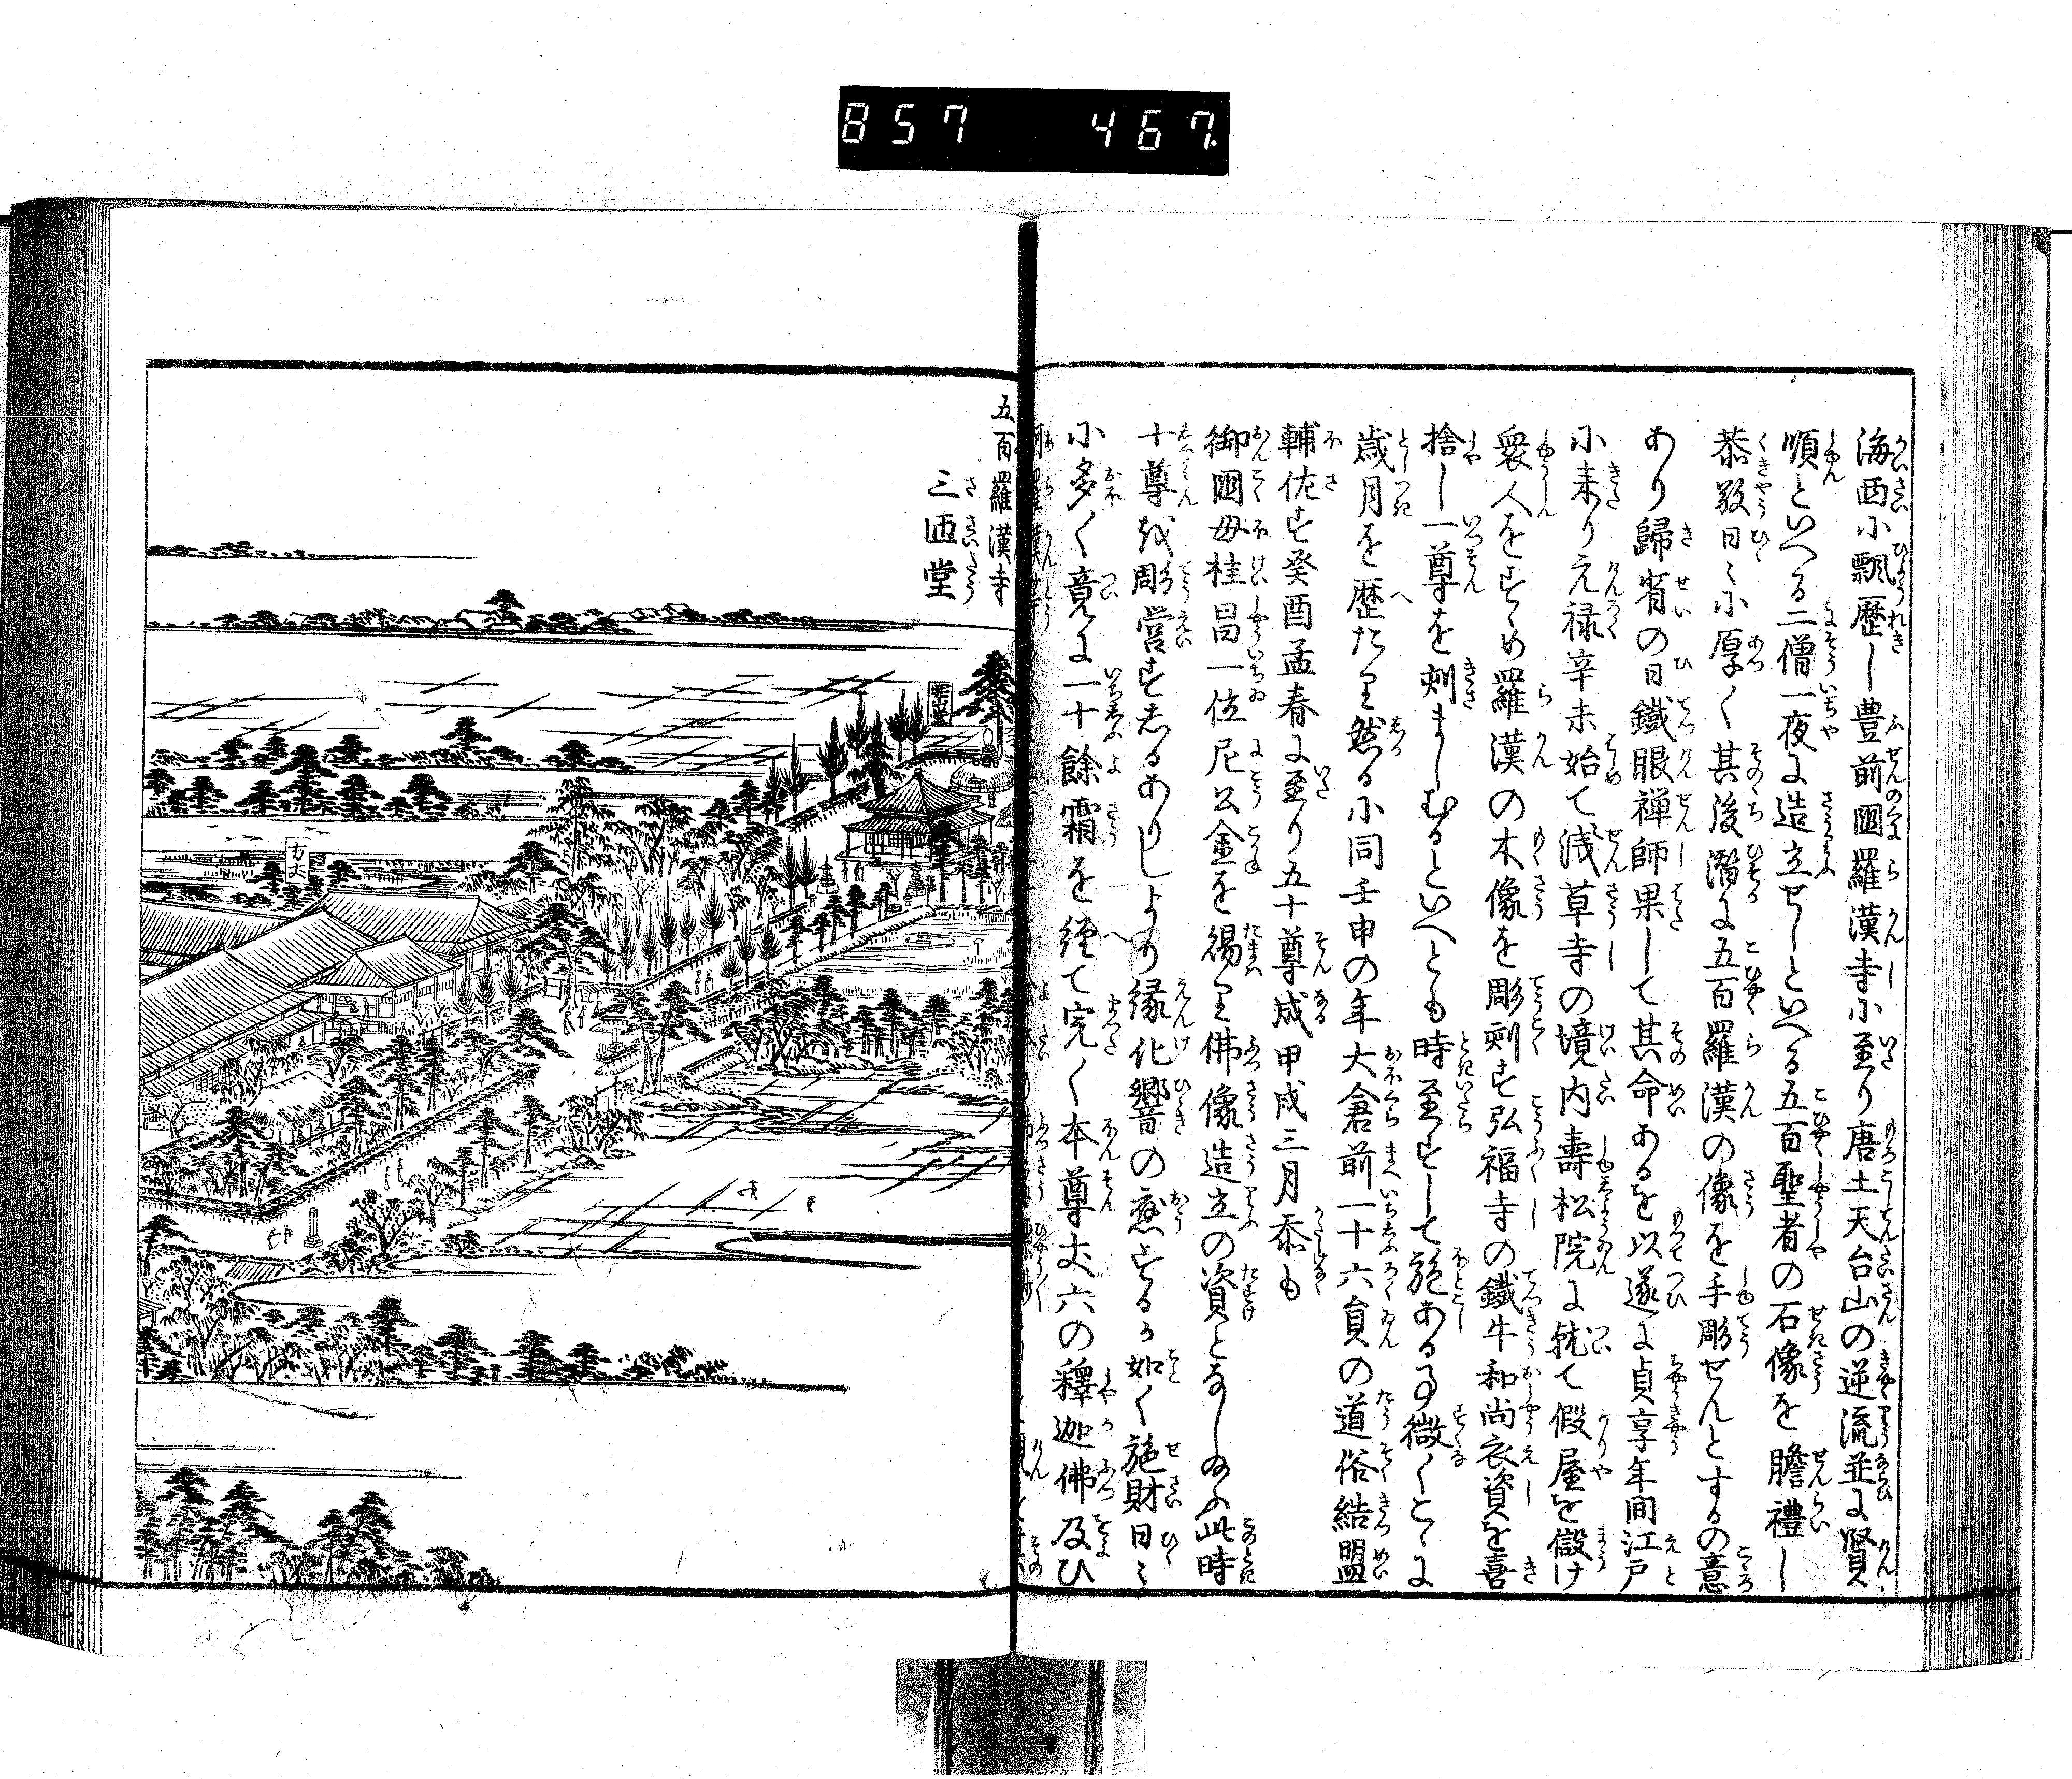 857 467.
海西に飄歴し豊前國羅漢寺に至り唐土天台山の逆流並に賢
順といへる二僧一夜に造立せしといへる五百聖者の石像を瞻禮し
恭敬日〻に厚く其後潜に五百羅漢の像を手彫せんとするの意
あり歸省の日鐵眼禅師果して其命あるを以遂に貞享年間江戸
に来り元禄辛未始て浅草寺の境内壽松院に就て假屋を儲け
衆人をすゝめ羅漢の木像を彫刻す弘福寺の鐵牛和尚衣資を喜
捨し一尊を刻ましむるといへとも時至すして施ある事微くこゝに
歳月を歴たり然るに同壬申の年大倉前一十六員の道俗結盟
輔佐す癸酉孟春に至り五十尊成甲戌三月忝も
御國母桂昌一位尼公金を賜り佛像造立の資となし給ふ此時
十尊を彫營すしるありしより縁化響の應するか如く施財日〻
に多く竟に一十餘霜を經て完く本尊丈六の釋迦佛及ひ
五百羅漢寺
三匝堂
開山堂
方丈